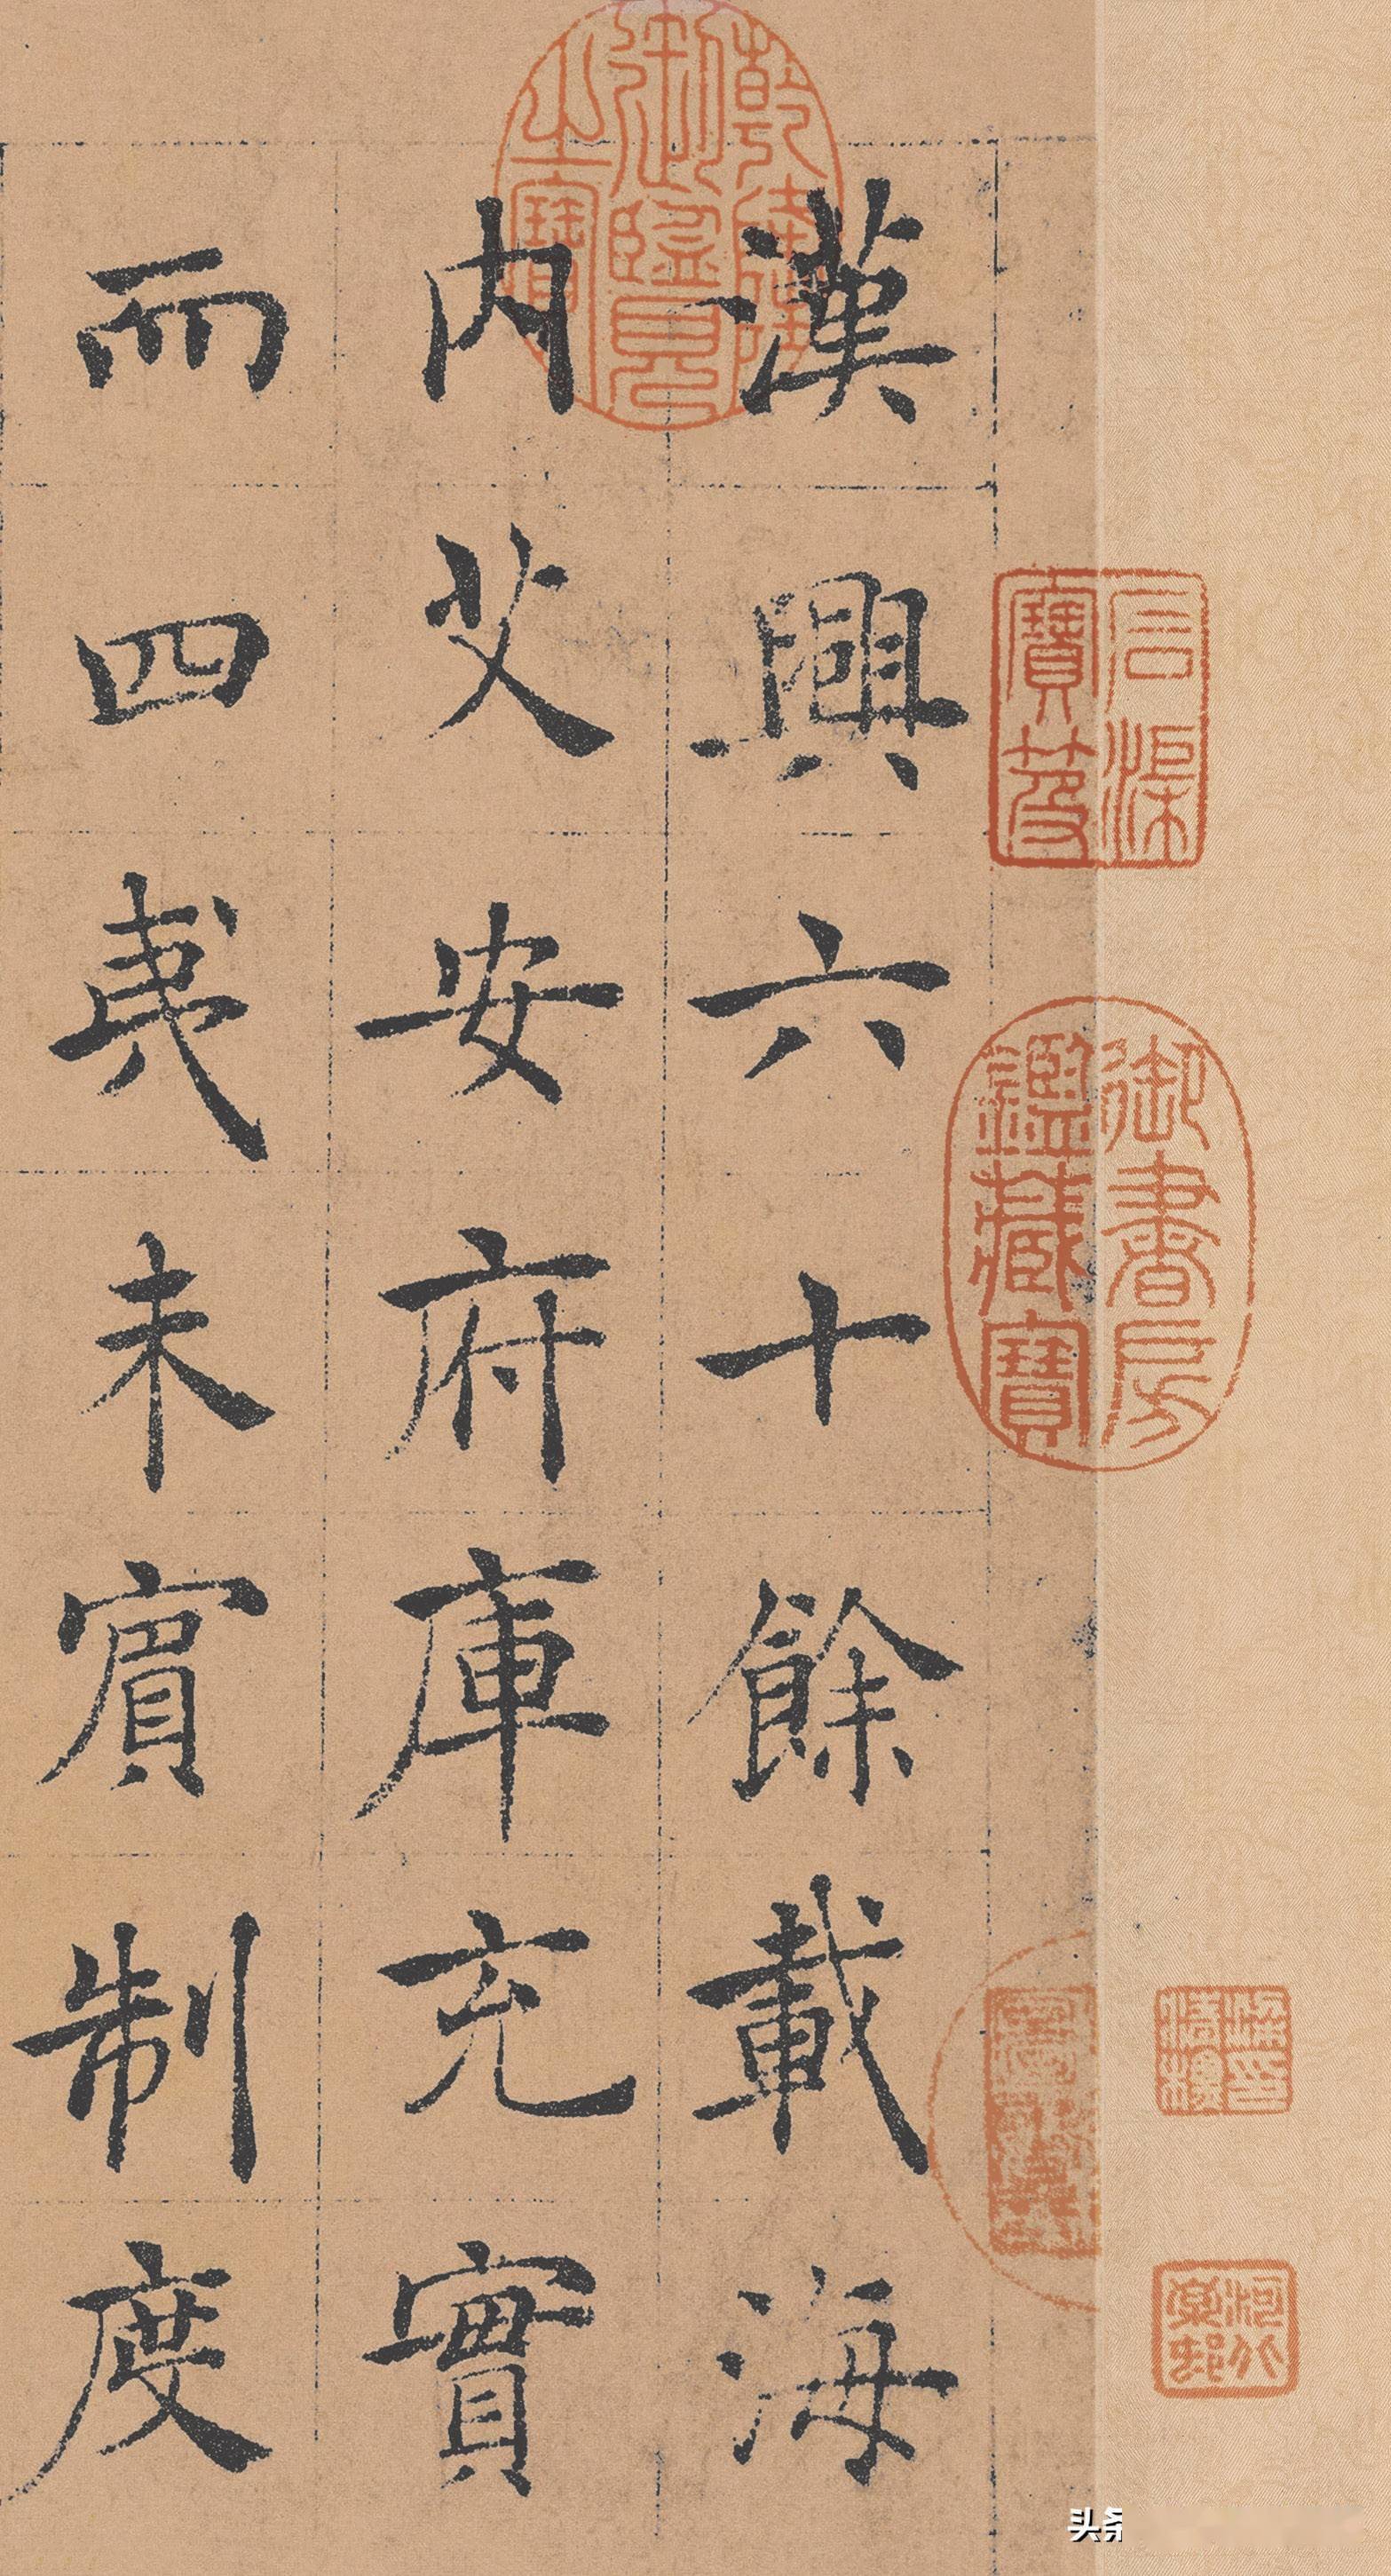 漢興六十餘載海
内艾安府庫充實
而四夷未賓制度
乾隆御覽之寶
石渠寶笈
御書房鑑藏寶
蕉林書屋
頭条